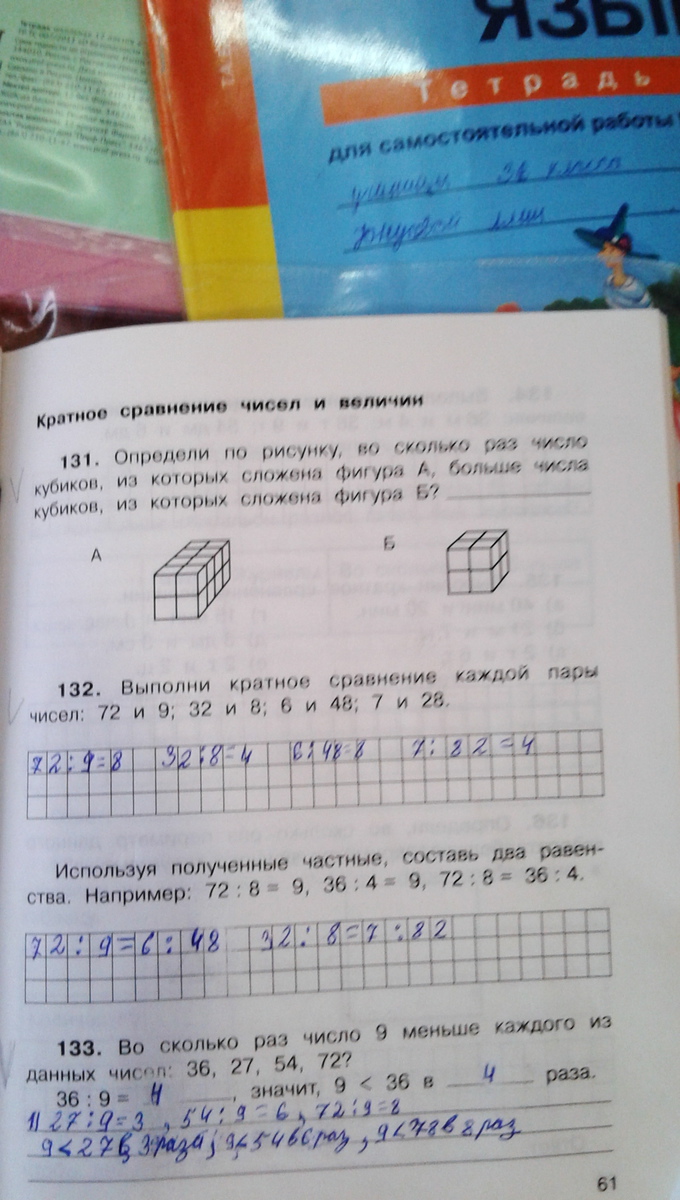 ЯЗЫ
Тетрадь
для самостоятельной работы
3 класса
Кратное сравнение чисел и величин
131. Определи по рисунку, во сколько раз число
кубиков, из которых сложена фигура А, больше числа
кубиков, из которых сложена фигура Б?
А Б
132. Выполни кратное сравнение каждой пары
чисел: 72 и 9; 32 и 8; 6 и 48; 7 и 28.
72:9=8 32:8=4 6:48=8 7:82=4
Используя полученные частные, составь два равен-
ства. Например: 72 : 8 = 9, 36 : 4 = 9, 72 : 8 = 36 : 4.
72:9=6:48 32:8=7:82
133. Во сколько раз число 9 меньше каждого из
данных чисел: 36, 27, 54, 72?
36 : 9 = 4, значит, 9 < 36 в 4 раза.
1) 27:9=3, 54:9=6, 72:9=8
9<27 в 3 раза, 9<54 в 6 раз, 9<78 в 8 раз
61